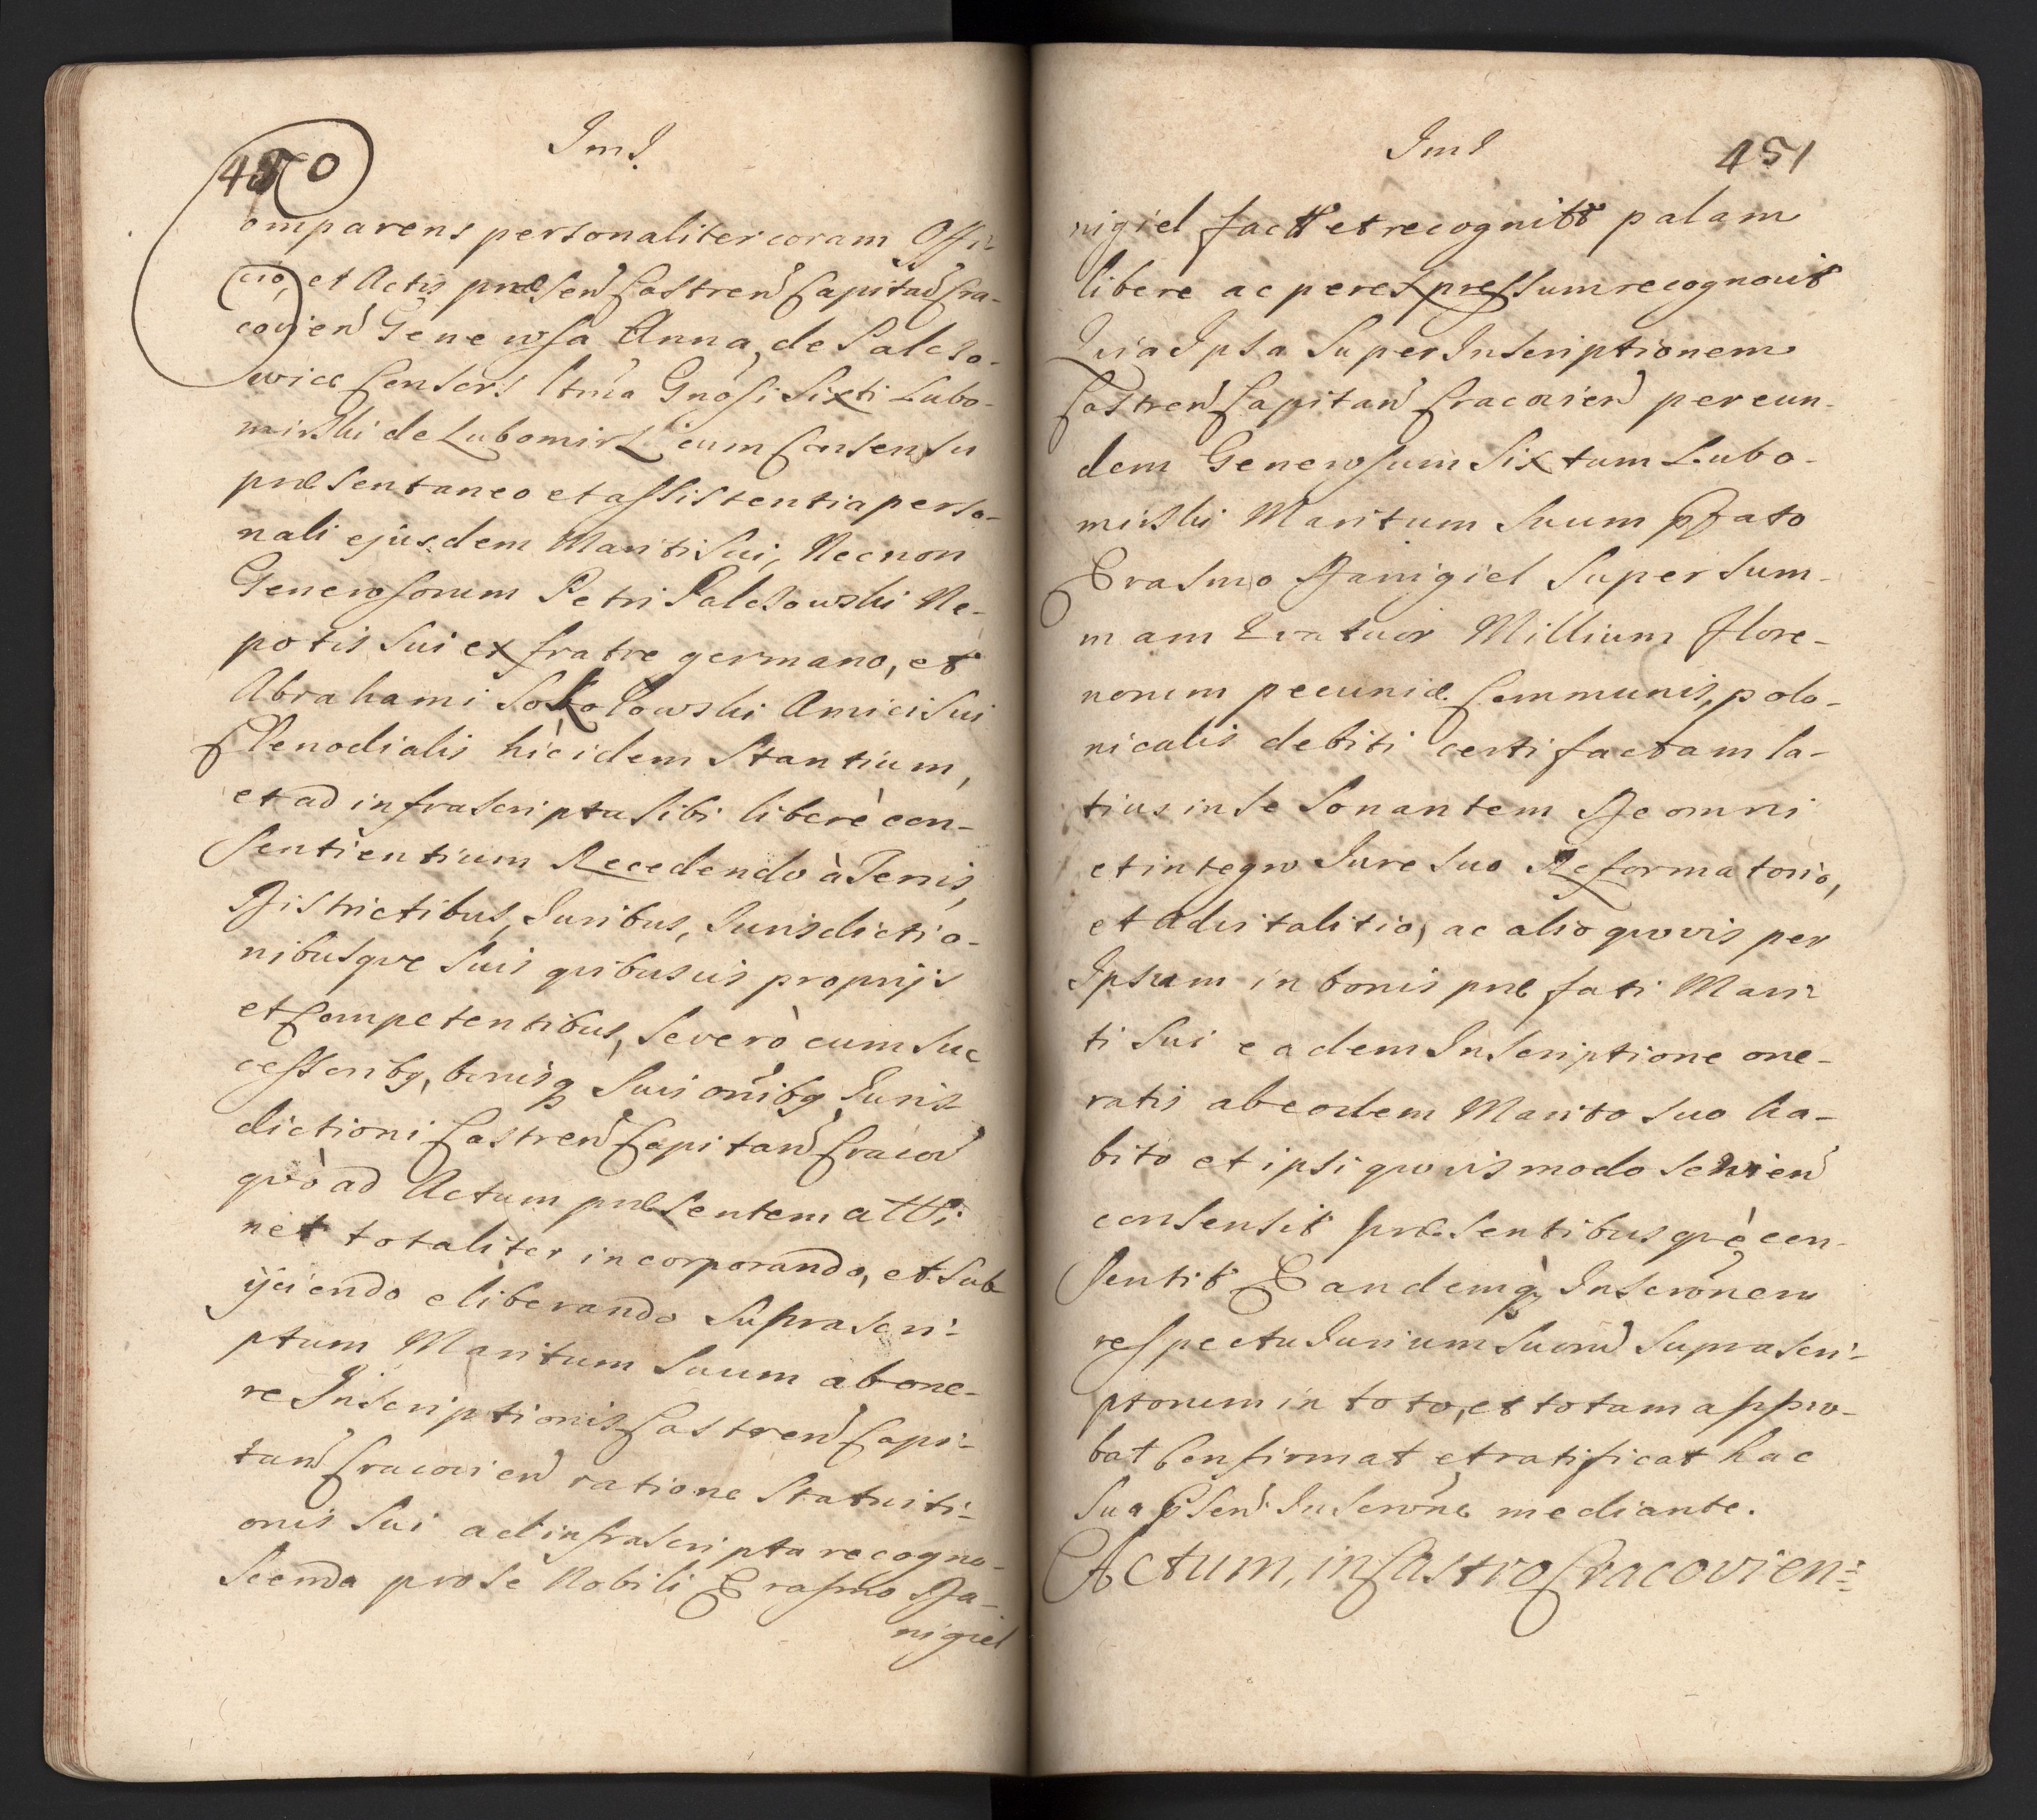 450
Imī
Comparens personaliter coram Offi-
cio, et Actis præsen Castren Capitan Cra-
covien Generosa Anna de Palczo-
wice Consors ltma Gnosi Sixti Lubo-
mirski de Lubomirz cum Consensu
præsentaneo et assistentia perso-
nali ejusdem Mariti Sui, Necnon
Generosorum Petri Palczowski Ne-
potis Sui ex fratre germano, et
Abrahami Sokołowski Amici Sui
Clenodialis hic idem Stantium,
et ad infrascripta sibi liberè con-
sentientium Recedendo à Terris,
Districtibus, Juribus, Jurisdictio-
nibusque suis quibusvis proprijs
et Competentibus, Se verò cum Suc
cessoribq, bonisq Suis oñibq Juris-
dictioni Castren Capitan Cracov
quò ad Actum præsentem atti
net totaliter incorporando, et Sub
ijciendo eliberando Suprascri-
ptum Maritum Suum ab one-
re Inscriptionis Castren Capi-
tan Cracovien ratione Statuiti-
onis Sui ad infrascripta recogno-
scenda pro se Nobili Erasmo Da-
nigiel
Imī
451
nigiel factt et recognitt palam
libere ac per expressum recognovit
Quia Ipsa Super Inscriptionem
Castren Capitan Cracovien per eun-
dem Generosum Sixtum Lubo-
mirski Maritum Suum pfato
Erasmo Danigiel Super Sum-
mam Quatuor Millium flore-
norum pecuniæ Communis, polo-
nicalis debiti certi factam la-
tius in se Sonantem De omni
et integro Jure Suo Reformatorio,
et Advitalitio, ac alio quovis per
Ipsam in bonis præfati Mari
ti Sui eadem Inscriptione one-
ratis ab eodem Marito Suo ha-
bito et ipsi quovis modo Servien
consensit præsentibusquè con-
sentit Eandemq Inscrōnem
respectu Jurium Suoru Suprascri-
ptorum in toto, et totam appro-
bat Confirmat et ratificat hac
Sua psen Inscrōne mediante.
Actum, in Castro Cracovien: